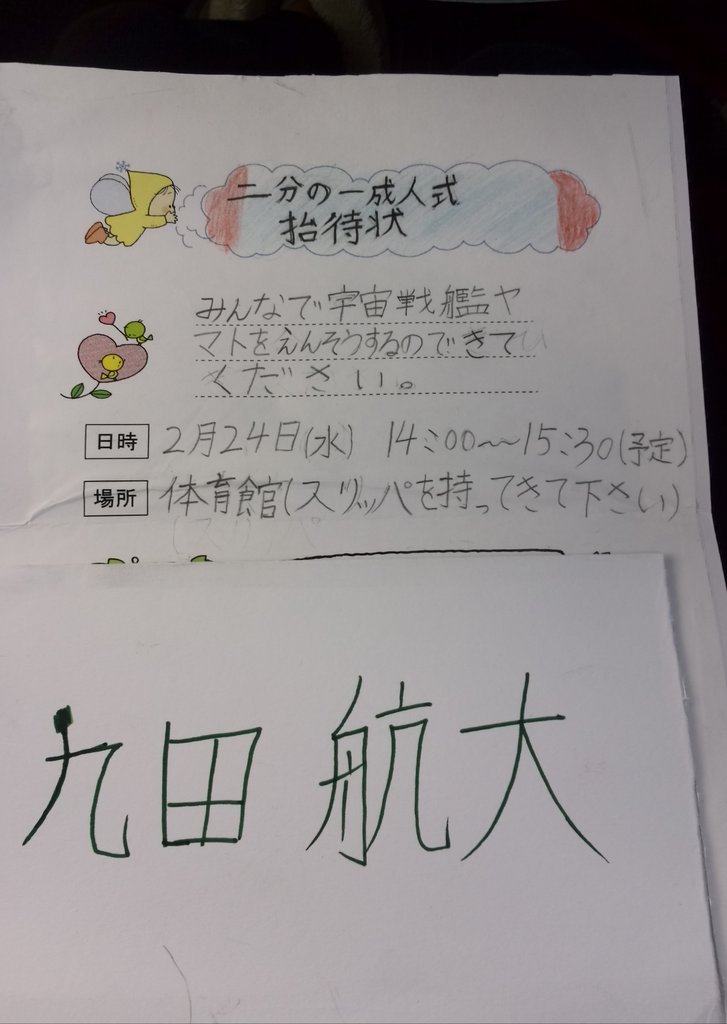 二分の一成人式
抬待状
みんなで宇宙戦艦ヤ
マトをえんそうするのできて
ください。
日時 2月24日(水) 14:00〜15:30(予定)
場所 体育館(スリッパを持ってきて下さい)
九田 航大